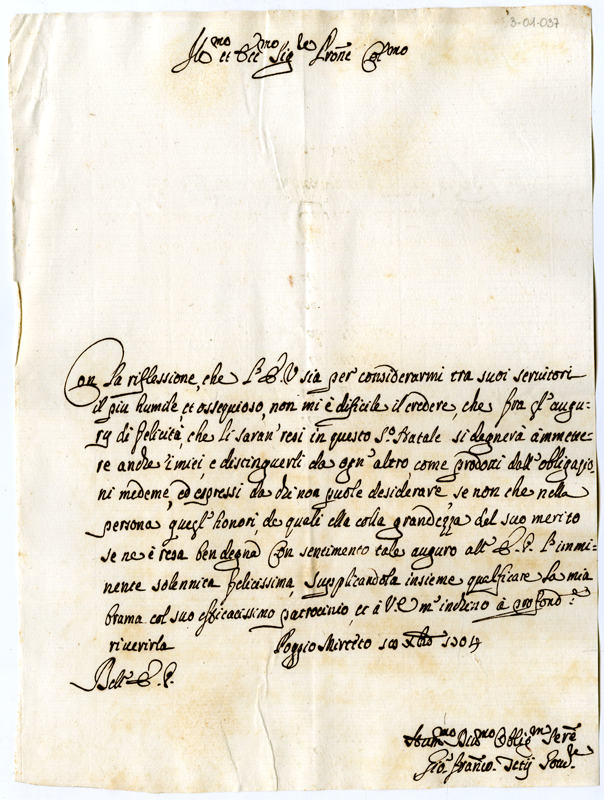 3-01-037
Ill.mo et Ecc.mo Sig.re Prone Col.mo
Con la riflessione, che l'E.V. sia per considerarmi tra suoi servitori
il piu humile et ossequioso, non mi è dificile il credere, che fra gl'augu-
rij di felicità, che li saran' resi in questo S.o Natale si degnerà ammette-
re anche i miei, e distinguerli da ogn'altro, come prodotti dall'obligazio-
ni medeme, ed espressi da chi non puole desiderare, se non che nella
persona quegl'honori, de quali ella colla grandezza del suo merito
se ne è resa ben degna Con sentimento tale auguro all' E.V. l'immi-
nente solennità felicissima, supplicandola insieme qualficare la mia
brama col suo efficacissimo patrocinio, et à V.E. m'inchino à profond.e
riverirla
Poggio Mirteto 1704
Dell' E.V.
Hum.mo Dev.mo Oblig.mo Ser.e
Gio. Franco.